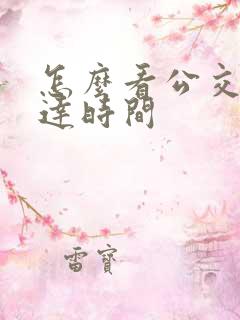 怎麼看公交
達時間
雷寶